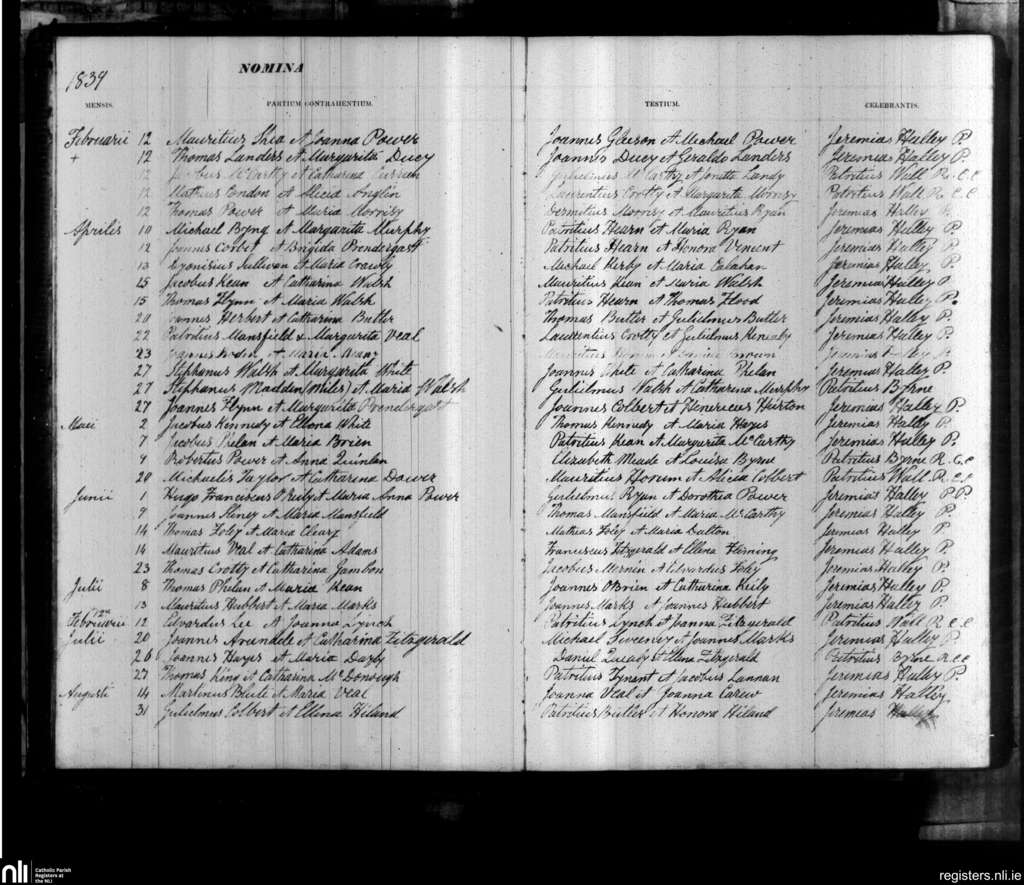 NOMINA
1839
MENSIS. PARTIUM CONTRAHENTIUM. TESTIUM. CELEBRANTIS.
Februarii 12 Mauritius Shea et Joanna Power Joannes Gleeson et Michael Power Jeremias Halley P.
+ 12 Thomas Landers et Margarita Ducy Joannes Ducy et Geraldo Landers Jeremias Halley P.
12 McCarthy et Catharina Gulielmus McCarthy et Landy Patritius Wall R.C.C
12 Condon et Alicia Anglin Laurentius Crotty et Margarita Patritius Wall R.C.C
12 Thomas Power et Maria Morrisy et Mauritius Ryan Jeremias Halley P.
Aprilis 10 Michael Byng et Margarita Murphy Patritius Hearn et Maria Ryan Jeremias Halley P.
12 Joannes Corbet et Brigida Prendergast Patritius Hearn et Honora Vincent Jeremias Halley P.
13 Dyonisius Sullivan et Maria Crawly Michael Kirby et Maria Calahan Jeremias Halley P.
15 Jacobus Kean et Catharina Walsh Mauritius Kean et Maria Walsh Jeremias Halley P
15 Thomas Flynn et Maria Walsh Patritius Hearn et Thomas Flood Jeremias Halley P.
20 Joannes Herbert et Catharina Butler Thomas Butler et Gulielmus Butler Jeremias Halley P.
22 Patritius Mansfield & Margarita Veal Laurentius Crotty et Gulielmus Jeremias Halley P.
23 Joannes et Maria Mauritius et Jeremias Halley P.
27 Stephanus Walsh et Margarita White Joannes White et Catharina Phelan Jeremias Halley P.
27 Stephanus Madden (Miles) et Maria Walsh Gulielmus Walsh et Catharina Murphy Patritius Byrne
27 Joannes Flynn et Margarita Prendergast Joannes Colbert et Henericus Hurton Jeremias Halley P.
Maii 2 Jacobus Kennedy et Ellena White Thomas Kennedy et Maria Hayes Jeremias Halley P.
7 Jacobus Phelan et Maria Brien Patritius Kean et Margarita McCarthy Jeremias Halley P.
9 Robertus Power et Anna Quinlan Elizabeth Meade et Louisa Byrne Patritius Byrne R.C.C
20 Michaelis Taylor et Catharina Power Mauritius et Alicia Colbert Patritius Wall R.C.C
Junii 1 Hugo Franciscus et Maria Anna Power Gulielmus Ryan et Dorothea Power Jeremias Halley P.P.
9 Joannes Sliney et Maria Mansfield Thomas Mansfield et Maria McCarthy Jeremias Halley P.
14 Thomas Foley et Maria Cleary Mathias Foley et Maria Dalton Jeremias Halley P
14 Mauritius Veal et Catharina Adams Franciscus Fitzgerald et Ellena Fleming Jeremias Halley P.
23 Thomas Crotty et Catharina Gambon Jacobus Mernin et Edwardus Foley Jeremias Halley P.
Julii 8 Thomas Phelan et Maria Kean Joannes OBrien et Catharina Keily Jeremias Halley P.
13 Mauritius Hubbert et Maria Marks Joannes Marks et Joannes Hubbert Jeremias Halley P.
12a
Februarii 12 Edvardus Lee et Joanna Lynch Patritius Lynch et Joanna Fitzgerald Patritius Wall R.C.C
Julii 20 Joannes Arundele et Catharina Fitzgerald Michael Sweeney et Joannes Marks Jeremias Halley P.
26 Joannes Hayes et Maria Darby Daniel et Ellena Fitzgerald Patritius Byrne R.C.C
27 Thomas King et Catharina McDonough Patritius et Jacobus Lannan Jeremias Halley P.
Augusti 14 Martinus et Maria Veal Joanna Veal et Joanna Carew Jeremias Halley
31 Gulielmus Colbert et Ellena Hiland Patritius Butler et Honora Hiland Jeremias Halley
nli Catholic Parish
Registers at
the NLI
registers.nli.ie